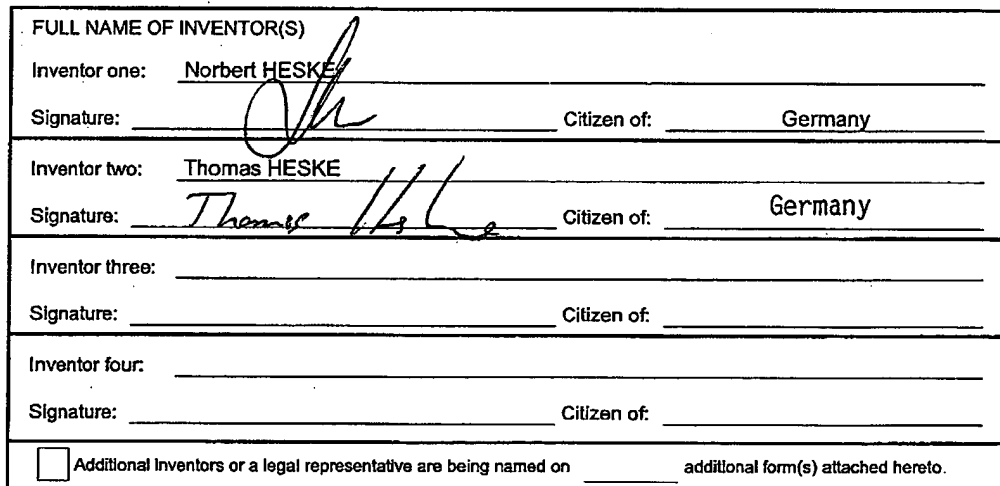 FULL NAME OF INVENTOR(S)
Inventor one: Norbert HESKE
Signature: Citizen of: Germany
Inventor two: Thomas HESKE
Signature: Thomas Heske Citizen of: Germany
Inventor three:
Signature: Citizen of:
Inventor four:
Signature: Citizen of:
Additional inventors or a legal representative are being named on additional form(s) attached hereto.